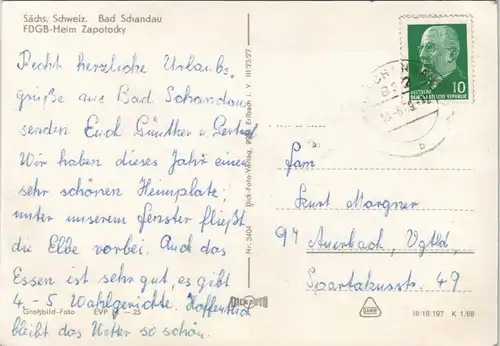 Sächs. Schweiz. Bad Schandau
FDGB-Heim Zapotocky
Recht herzliche Urlaubs-
grüße aus Bad Schandau
senden Euch Günther u.
Wir haben dieses Jahr einen
sehr schönen Heimplatz;
unter unserem Fenster fließt
die Elbe vorbei. Auch das
Essen ist sehr gut, es gibt
4.-5 Wahlgerichte. Hoffentlich
bleibt das Wetter so schön.
Großbild-Foto EVP -.25
III 23/27
Dick-Foto-Verlag, Erlbach i. V.
Nr. 3404
DICK FOTO
DEUTSCHE
DEMOKRATISCHE REPUBLIK
10
b
Fam
Kurt Morgner
97 Auerbach, Vgtld,
Spartakusstr. 49
III 18 197 K 1/68